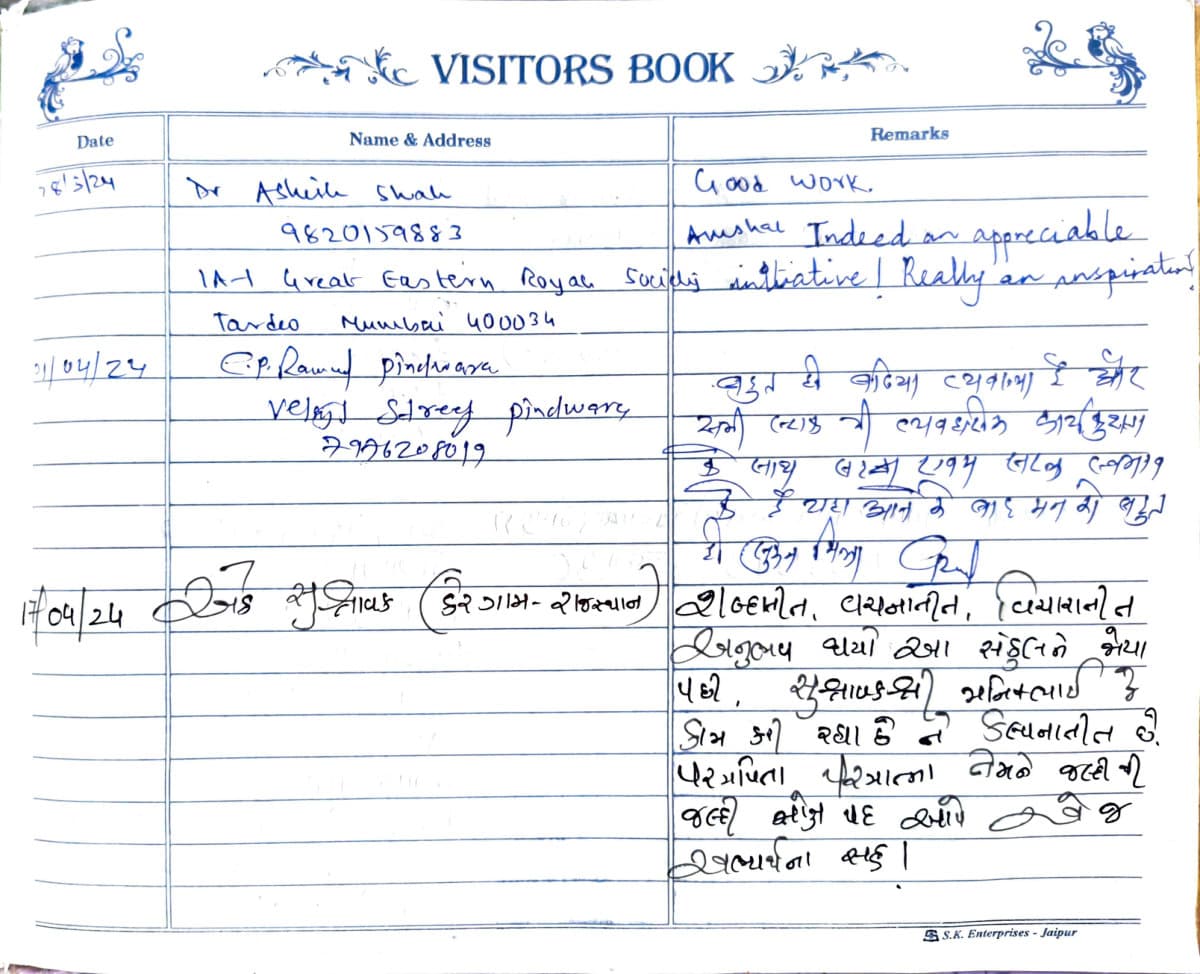 VISITORS BOOK
Date Name & Address Remarks
28/3/24 Dr Ashish Shah Good work.
9820159883 Indeed an appreciable
1A-1 Great Eastern Royal Society initiative! Really an inspiration!
Tardeo Mumbai 400034
/04/24 C.P. Rawal pindwara बहुत ही बढिया व्यवस्था है और
street pindwara सभी स्टाफ भी
7976208019 के साथ
है यहा आने के बाद मन को बहुत
ही सुकुन मिला
17/04/24 એક સુશ્રાવક (કેરગામ - રાજસ્થાન) શબ્દાતીત, વચનાતીત, વિચારાતીત
અનુભવ થયો આ સંકુલને જોયા
પછી. સુશ્રાવકશ્રી જે
કામ કરી રહ્યા છે તે કલ્પનાતીત છે.
પરમપિતા પરમાત્મા તેમને જલ્દી થી
જલ્દી મોક્ષ પદ આપે એ જ
અભ્યર્થના સહ।
S.K. Enterprises - Jaipur